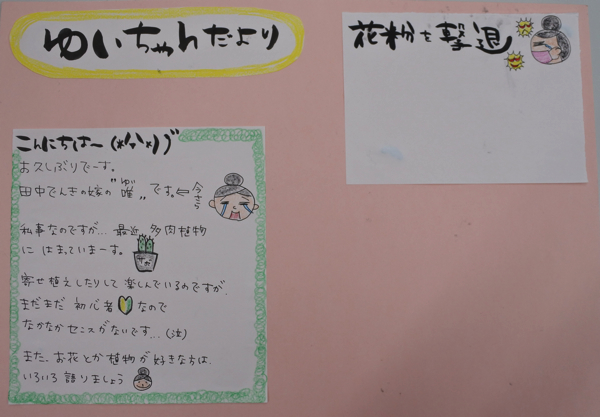 ゆいちゃんだより
花粉を撃退
こんにちは～(*^^*)ノ
お久しぶりでーす。
田中でんきの嫁の"唯"です。←今さら
ゆい
私事なのですが…最近 多肉植物
に はまっていまーす。
寄せ植えしたりして 楽しんでいるのですが、
まだまだ 初心者 なので
なかなかセンスがないです…(泣)
また、お花とか 植物が 好きな方は、
いろいろ 語りましょう